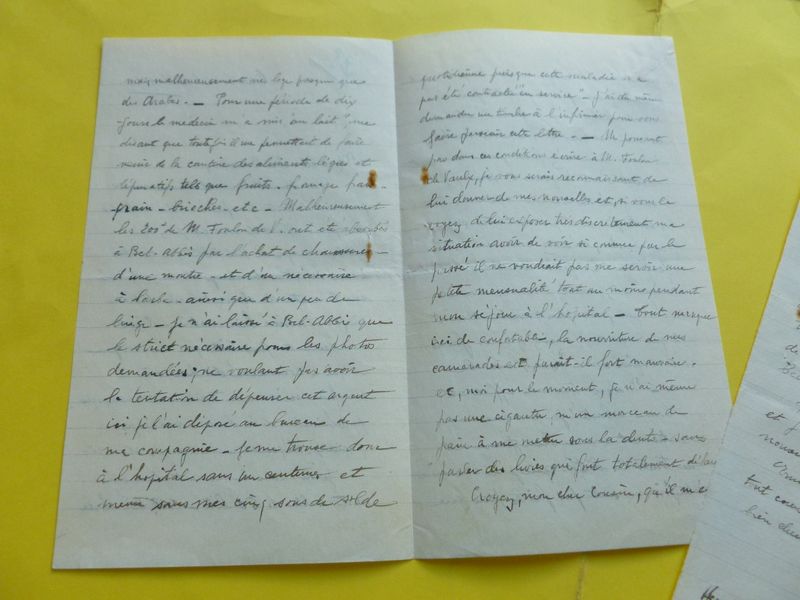 mais malheureusement ne loge presque que
des Arabes. — Pour une période de dix
jours le médecin m'a mis "au lait", me
disant que toutefois il me permettait de faire
venir de la cantine des aliments légers et
tels que fruits - fromage frais
grain - brioches - etc — Malheureusement
les 200f de M. Foulon de V. ont été absorbés
à Bel-Abbès par l'achat de chaussures
d'une montre - et d'un nécessaire
à - ainsi que d'un peu de
linge - je n'ai laissé à Bel-Abbès que
le strict nécessaire pour les photos
demandées; ne voulant pas avoir
la tentation de dépenser cet argent
ici je l'ai déposé au bureau de
ma compagnie - je me trouve donc
à l'hopital sans un centime et
même sans mes cinq sous de solde
quotidienne puisque cette maladie n'a
pas été contractée "en service" - j'ai du même
demander un timbre à l'infirmier pour vous
faire parvenir cette lettre. — Ne pouvant
pas dans ces conditions écrire à M. Foulon
de Vaulx, je vous serais reconnaissant de
lui donner de mes nouvelles et, si vous le
voyez, de lui exposer très discrètement ma
situation avoir de voir si comme par le
passé il ne voudrait pas me servir une
petite mensualité tout au moins pendant
mon séjour à l'hopital — Tout manque
ici de confortable, la nourriture de mes
camarades est parait-il fort mauvaise.
et, moi pour le moment, je n'ai même
pas une cigarette, ni un morceau de
pain à me mettre sous la dent - sans
parler des livres qui font totalement
Croyez, mon cher Cousin, qu'il m'e
et
nouve
tout
bien